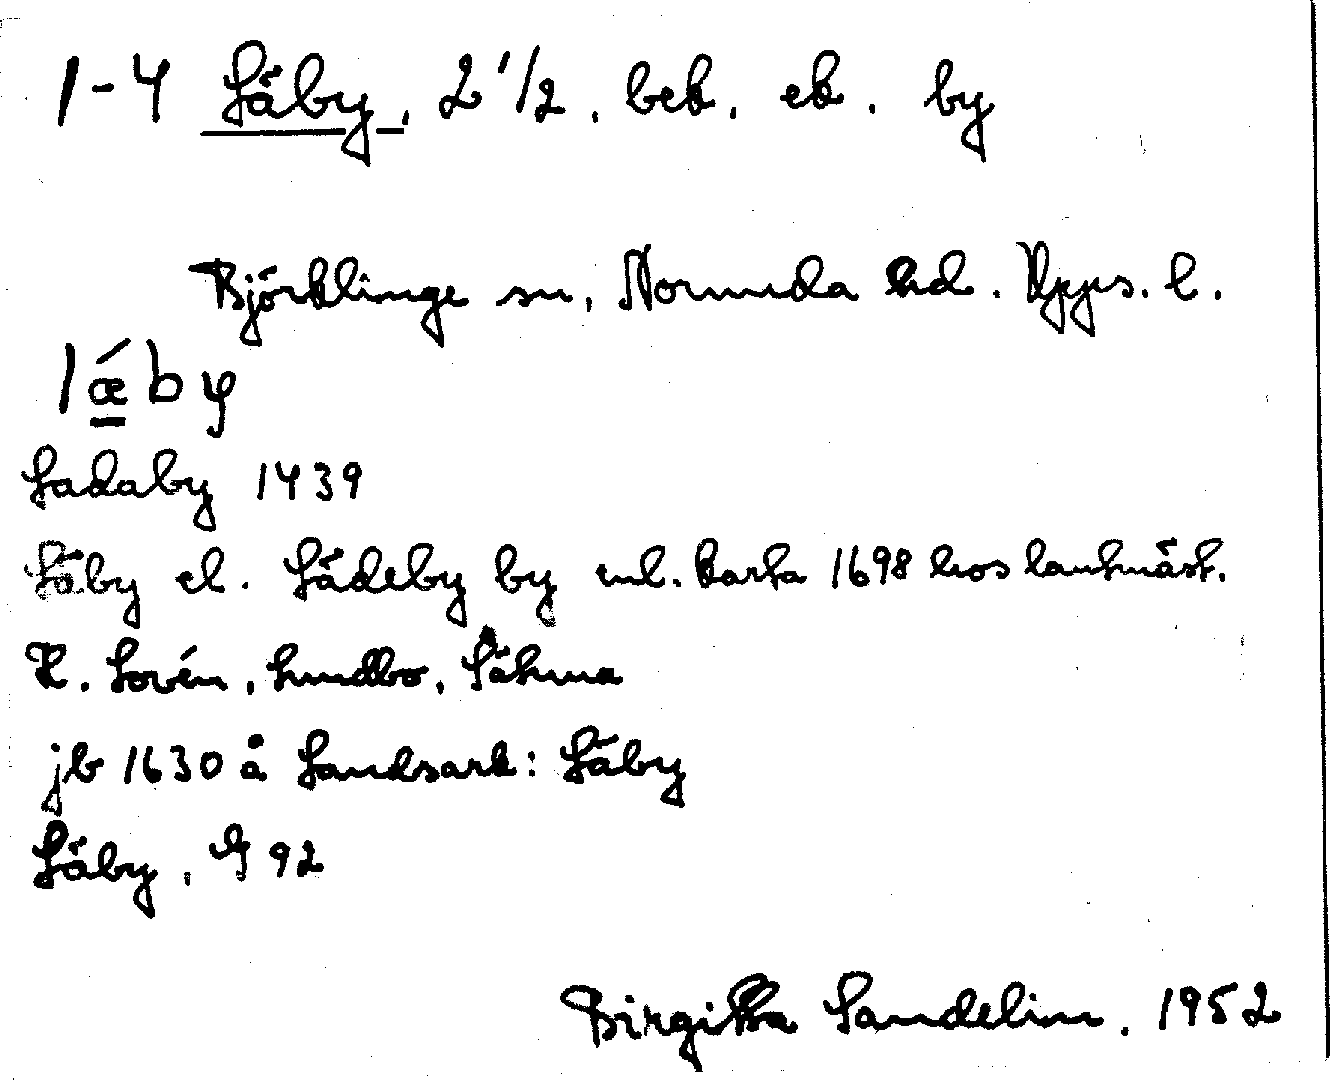 1-4 Läby, 2 1/2, beb. ek. by
Björklinge sn, Norunda hd. Upps. l.
láeby
Ladaby 1439
Läby el. Lädeby by enl. karta 1698 hos lantmäst.
K. Lovén, Lundbo, Låhma
jb 1630 å Landsark: Läby
Läby, G 92
Birgitta Sandelin. 1952